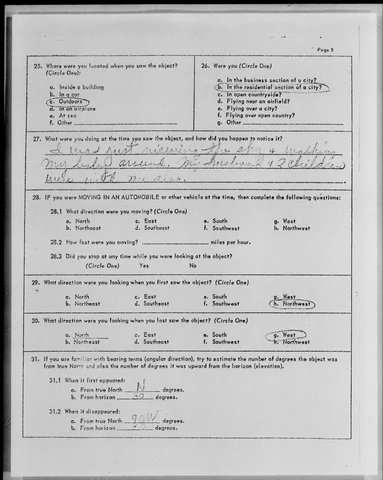 Page 5
25. Where were you located when you saw the object?
(Circle One):
a. Inside a building
b. In a car
c. Outdoors
d. In an airplane
e. At sea
f. Other
26. Were you (Circle One)
a. In the business section of a city?
b. In the residential section of a city?
c. In open countryside?
d. Flying near an airfield?
e. Flying over a city?
f. Flying over open country?
g. Other
27. What were you doing at the time you saw the object, and how did you happen to notice it?
I was just viewing the sky & walking
my baby around. My husband & 2 children
were with me also.
28. IF you were MOVING IN AN AUTOMOBILE or other vehicle at the time, then complete the following questions:
28.1 What direction were you moving? (Circle One)
a. North c. East e. South g. West
b. Northeast d. Southeast f. Southwest h. Northwest
28.2 How fast were you moving? miles per hour.
28.3 Did you stop at any time while you were looking at the object?
(Circle One) Yes No
29. What direction were you looking when you first saw the object? (Circle One)
a. North c. East e. South g. West
b. Northeast d. Southeast f. Southwest h. Northwest
30. What direction were you looking when you last saw the object? (Circle One)
a. North c. East e. South g. West
b. Northeast d. Southeast f. Southwest h. Northwest
31. If you are familiar with bearing terms (angular direction), try to estimate the number of degrees the object was
from true North and also the number of degrees it was upward from the horizon (elevation).
31.1 When it first appeared:
a. From true North N degrees.
b. From horizon 30 degrees.
31.2 When it disappeared:
a. From true North degrees.
b. From horizon degrees.